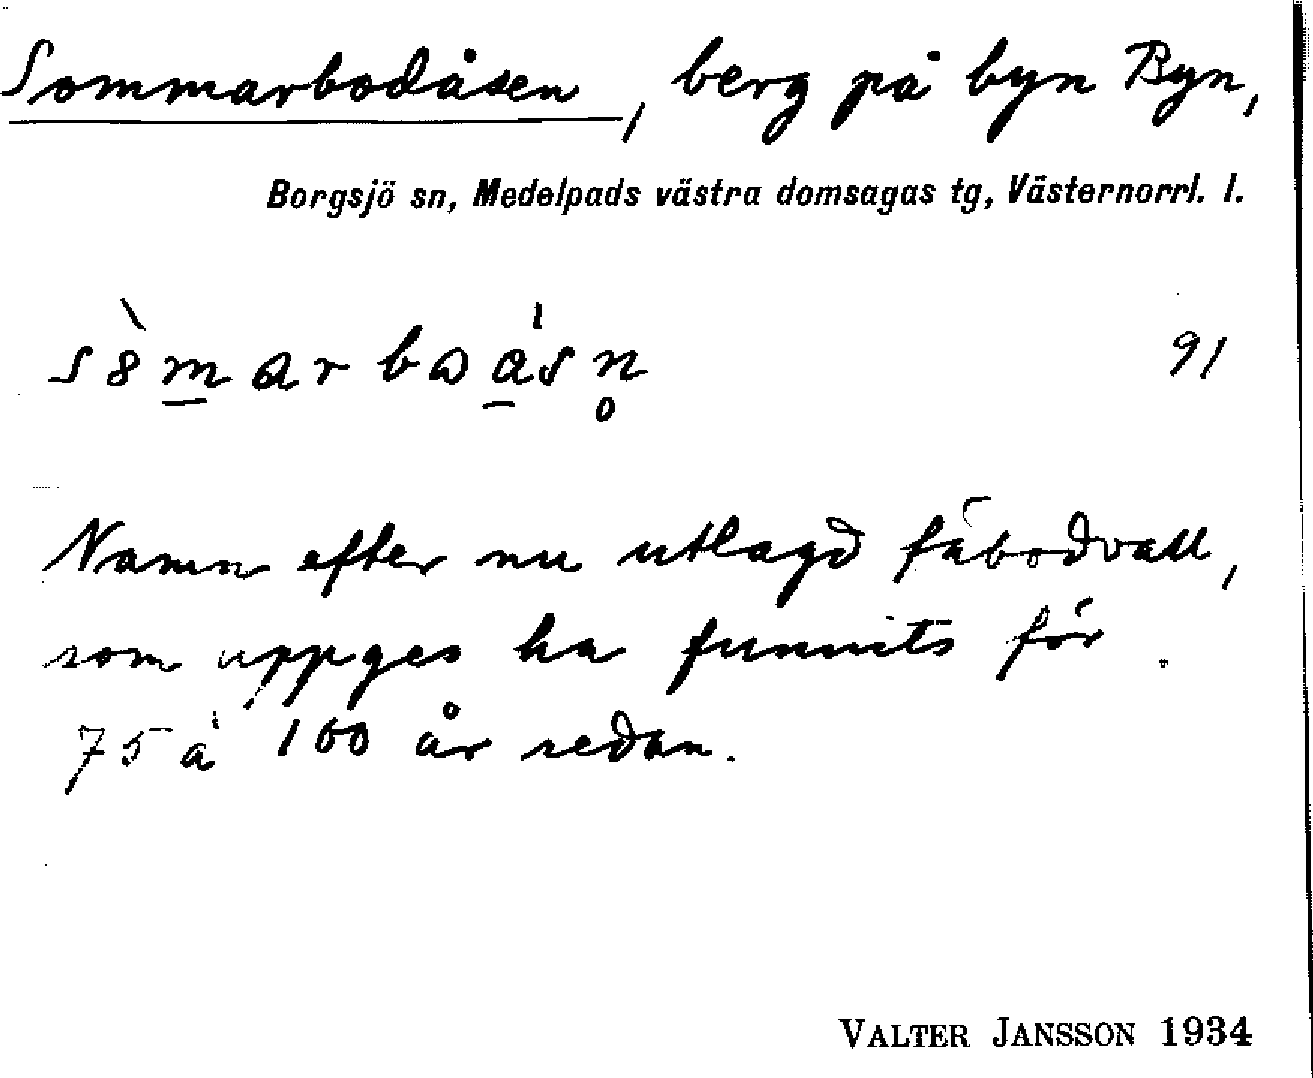 Sommarbodåsen, berg på byn Byn,
Borgsjö sn, Medelpads västra domsagas tg, Västernorrl. l.
91
Namn efter nu utlagd fäbodvall,
som uppges ha funnits för
75 à 100 år sedan.
VALTER JANSSON 1934